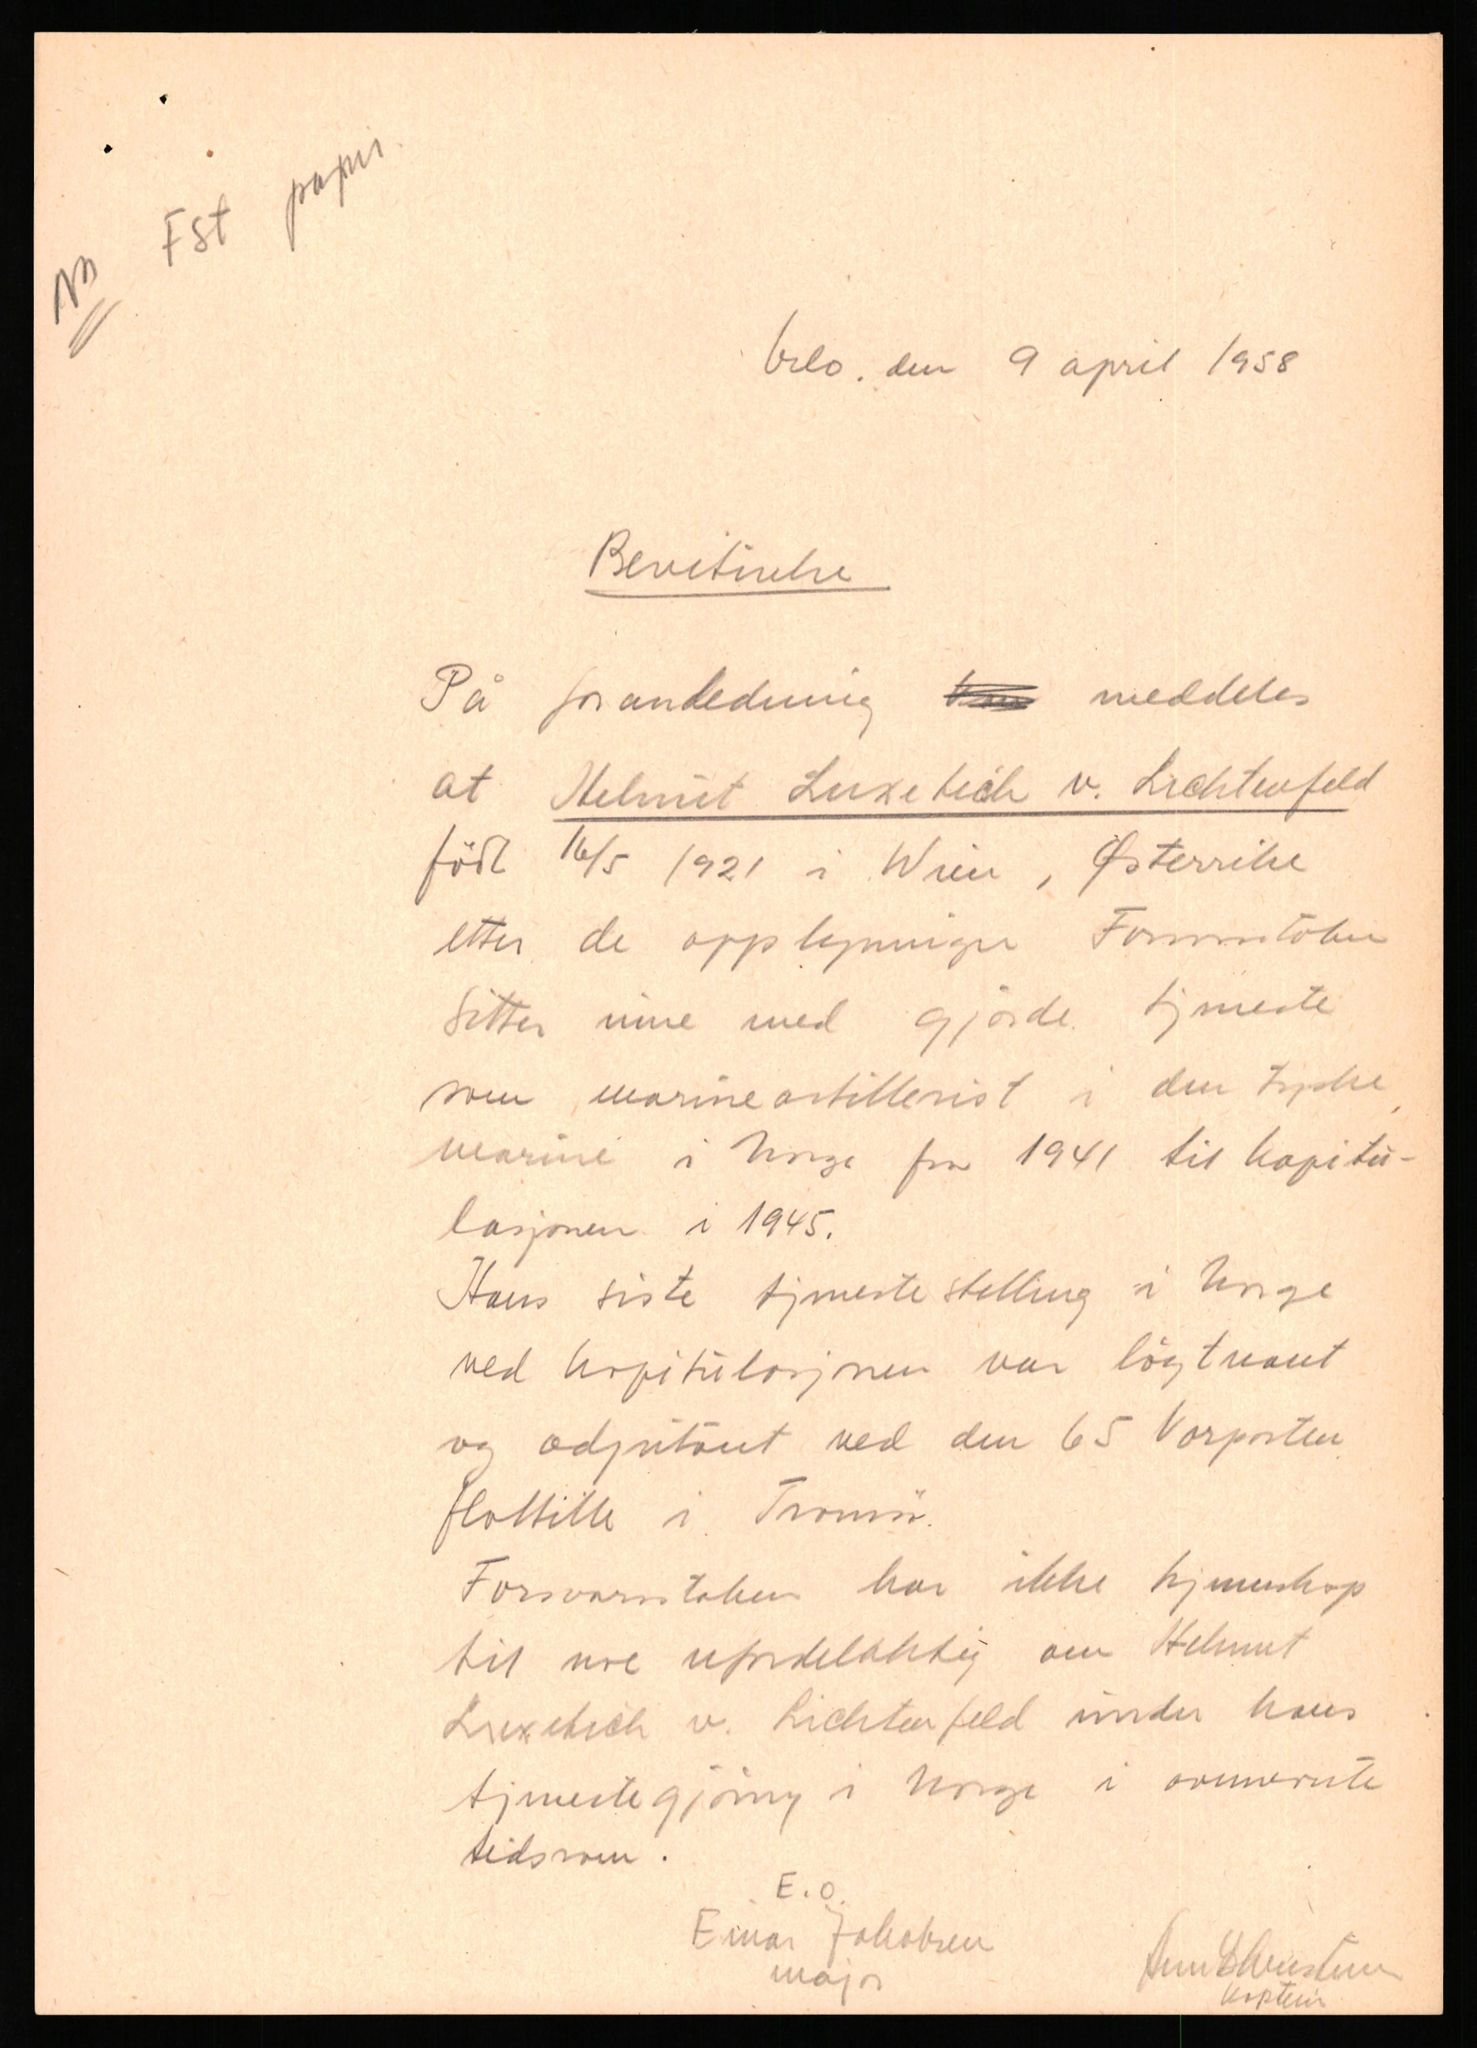 Fst papir.
Oslo. den 9 april 1958
Bevitnelse
På foranledning meddeles
at Helmut Luxetich v. Lichtenfeld
född 16/5 1921 i Wien, Österrike
etter de opplysninger Forsvarsstaben
sitter inne med gjörde tjeneste
som marineartillerist i den tyske
marine i Norge fra 1941 til kapitu-
lasjonen i 1945.
Hans siste tjenestestilling i Norge
ved kapitulasjonen var löytnant
og adjutant ved den 65 Vorposten
flottille i Tromsö.
Forsvarsstaben har ikke kjennskap
til noe ufordelaktig om Helmut
Luxetich v. Lichtenfeld under hans
tjenestegjöring i Norge i ovennevnte
tidsrom.
E.O.
Einar Jakobsen
major
kaptein